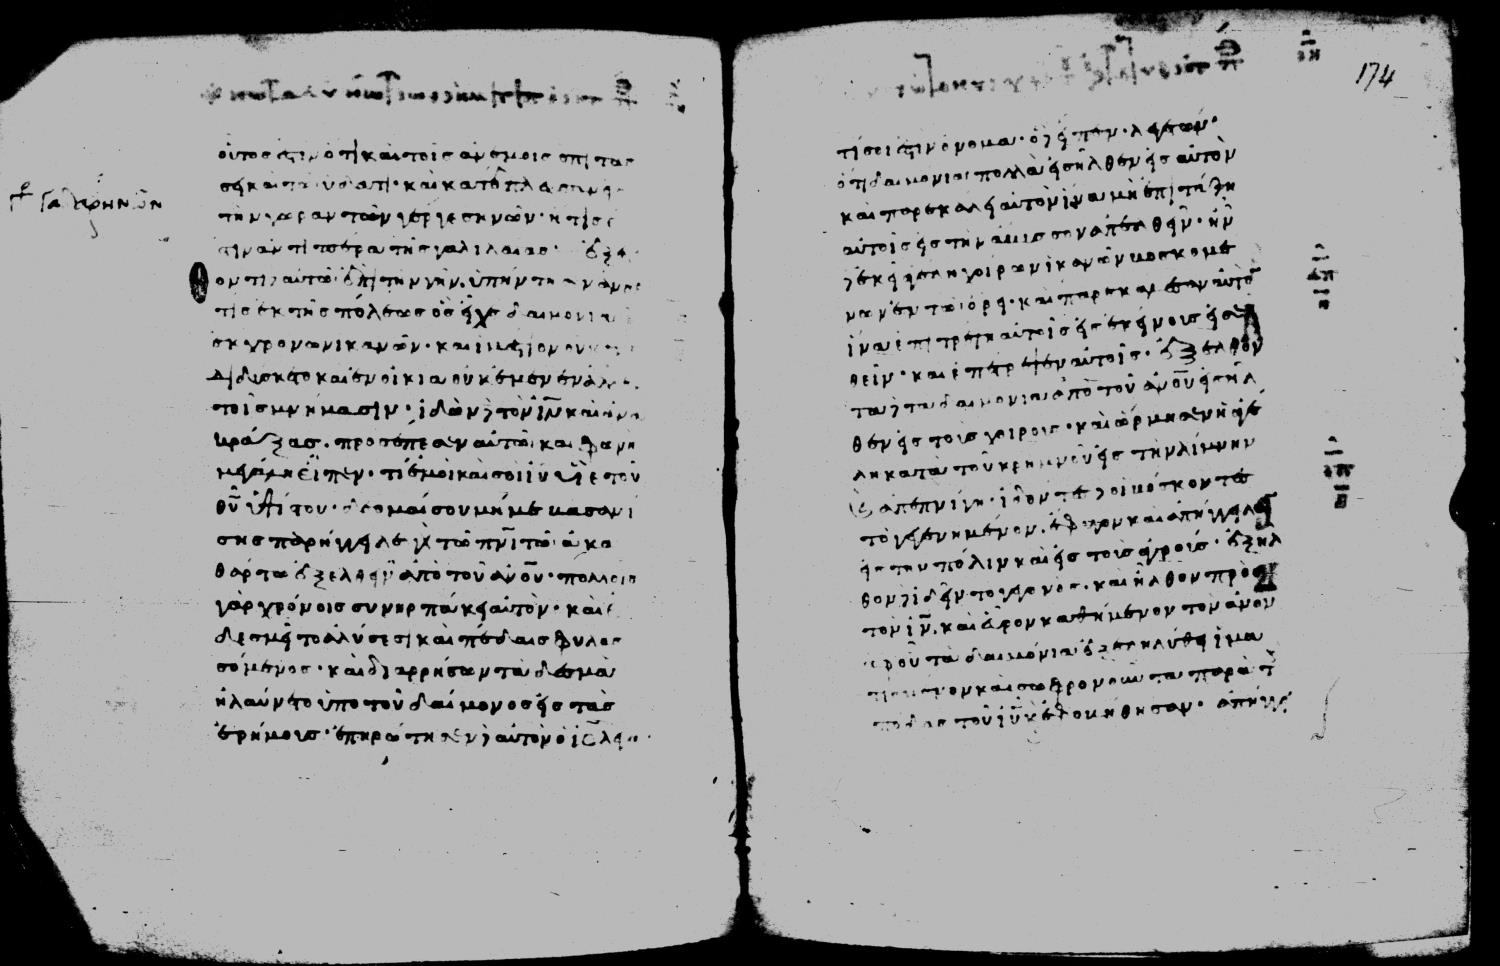 γαδαρηνῶν
οὗτος ἐστιν ὅτι καὶ τοῖς ἀνέμοις ἐπιτας
σει καὶ τῷ ὕδατι· καὶ κατέπλευσαν εἰς
τὴν χώραν τῶν γεργεσηνῶν· ἥτις ἐ
στιν ἀντιπέρα τῆς γαλιλαίας· ἐξελ
θοντι αὐτῷ ἐπὶ τὴν γῆν, ὑπήντησεν ἀνήρ
τίς ἐκ τῆς πόλεως ὃς εἶχε δαιμόνια
ἐκ χρόνων ἱκανῶν· καὶ ἱμάτιον οὐκ ἐνε
διδίσκετο καὶ ἐν οἰκία οὐκ ἔμενεν ἀλλ' ἐν
τοῖς μνήμασιν· ἰδὼν δὲ τὸν ἰν καὶ ἀνα
κράξας· προσέπεσεν αὐτῷ καὶ φωνῇ
μεγάλη εἶπεν· τί ἐμοὶ καὶ σοὶ ἰυ υἱὲ τοῦ
θυ ὑψίστου· δέομαί σου μή με βασανί
σης παρήγγειλε γὰρ τῷ πνι τῷ ἀκα
θάρτω ἐξελθεῖν ἀπὸ τοῦ ανου· πολλοῖς
γὰρ χρόνοις συνηρπάκει αὐτόν· καὶ ἐ
δεσμεῖτο ἁλύσεσι καὶ πέδαις φυλασ
σόμενος· καὶ διαρρήσων τὰ δεσμὰ
ἠλαύνετο ὑπὸ τοῦ δαίμονος εἰς τὰς
ἐρήμοις· ἐπηρώτησεν δὲ αὐτὸν ὁ ις λέγων
174
τί σοι ἐστιν ὄνομα· ὁ δὲ εἶπεν· λεγεών·
ὅτι δαιμόνια πολλὰ εἰσῆλθεν εἰς αὐτὸν
καὶ παρεκάλει αὐτὸν ἵνα μὴ ἐπιτάξη
αὐτοῖς εἰς τὴν ἄβυσσον ἀπελθεῖν· ἦν
δὲ ἐκεῖ ἀγέλη χοίρων ἱκανῶν βοσκομέ
νων ἐν τῷ ὄρει· καὶ παρεκάλεσαν αὐτὸν
ἵνα ἐπιτρέψη αὐτοῖς εἰς ἐκείνοις εἰσελ
θεῖν· καὶ ἐπέτρεψεν αὐτοῖς· ἐξελθόν
τα δὲ τὰ δαιμόνια ἀπὸ τοῦ ανου εἰσῆλ
θεν εἰς τοῖς χοίροις· καὶ ὥρμησεν ἡ ἀγέ
λη κατὰ τοῦ κρημνοῦ εἰς τὴν λίμνην
καὶ ἀπεπνίγη· ἰδόντες δὲ οἱ βόσκοντες
τὸ γεγενημένον, ἔφυγον καὶ ἀπήγγειλαν
εἰς τὴν πόλιν καὶ εἰς τοῖς ἀγροῖς· ἐξῆλ
θον δὲ ἰδεῖν τὸ γεγονός· καὶ ἦλθον πρὸς
τὸν ιν, καὶ εὗρον καθήμενον τὸν ανον
ἀφ' οὗ τὰ δαιμόνια ἐξεληλύθει ἱμα
τισμένον καὶ σωφρονοῦντα παρὰ τοὺς
πόδας τοῦ ιυ καὶ ἐφοβήθησαν· ἀπήγγ